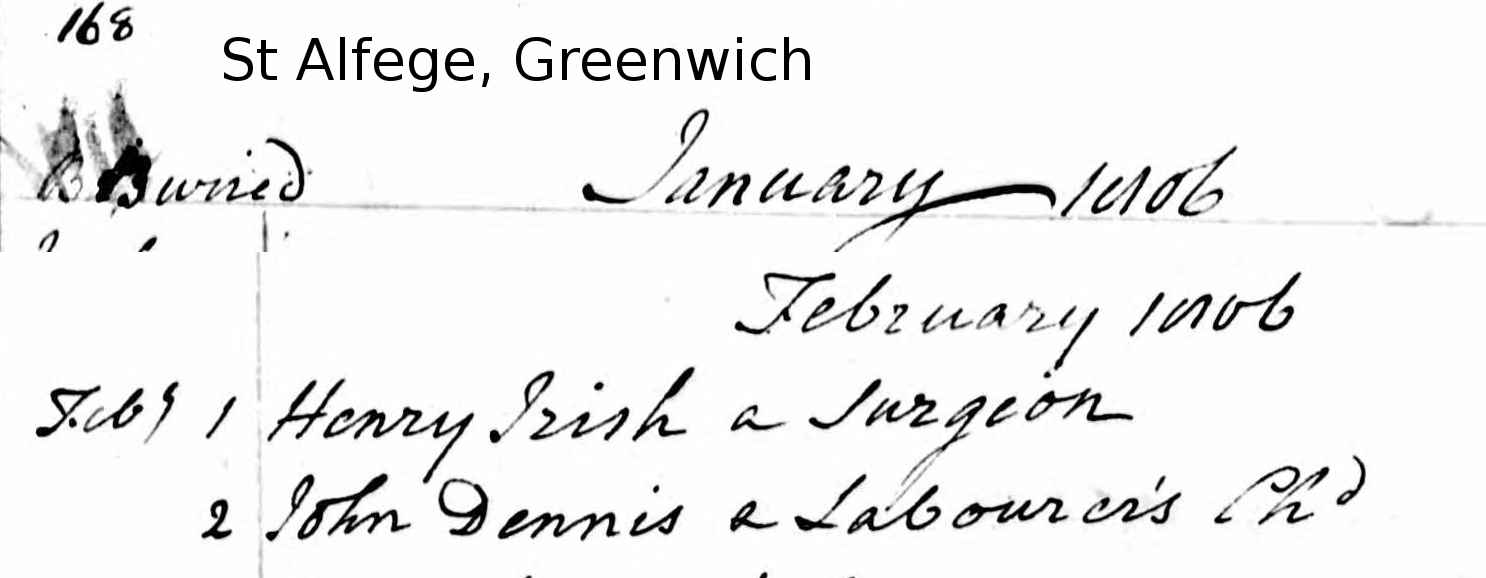 168
St Alfege, Greenwich
Buried January 1806
February 1806
Feby 1 Henry Irish a Surgeon
2 John Dennis a Labourer's Chd